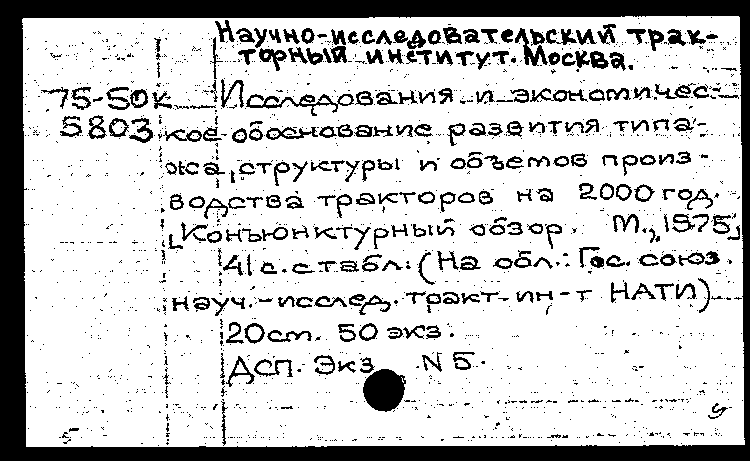 Научно-исследовательский трак-
торный институт. Москва.
75-50к Исследования и экономичес-
5803 кое обоснование развития типа-
жа, структуры и объемов произ-
водства тракторов на 2000 год.
[Конъюнктурный обзор. М., 1975]
41с. с табл. (На обл.: Гос. союз.
науч.-исслед. тракт. ин-т НАТИ)
20см. 50 экз.
ДСП. Экз. N 5.